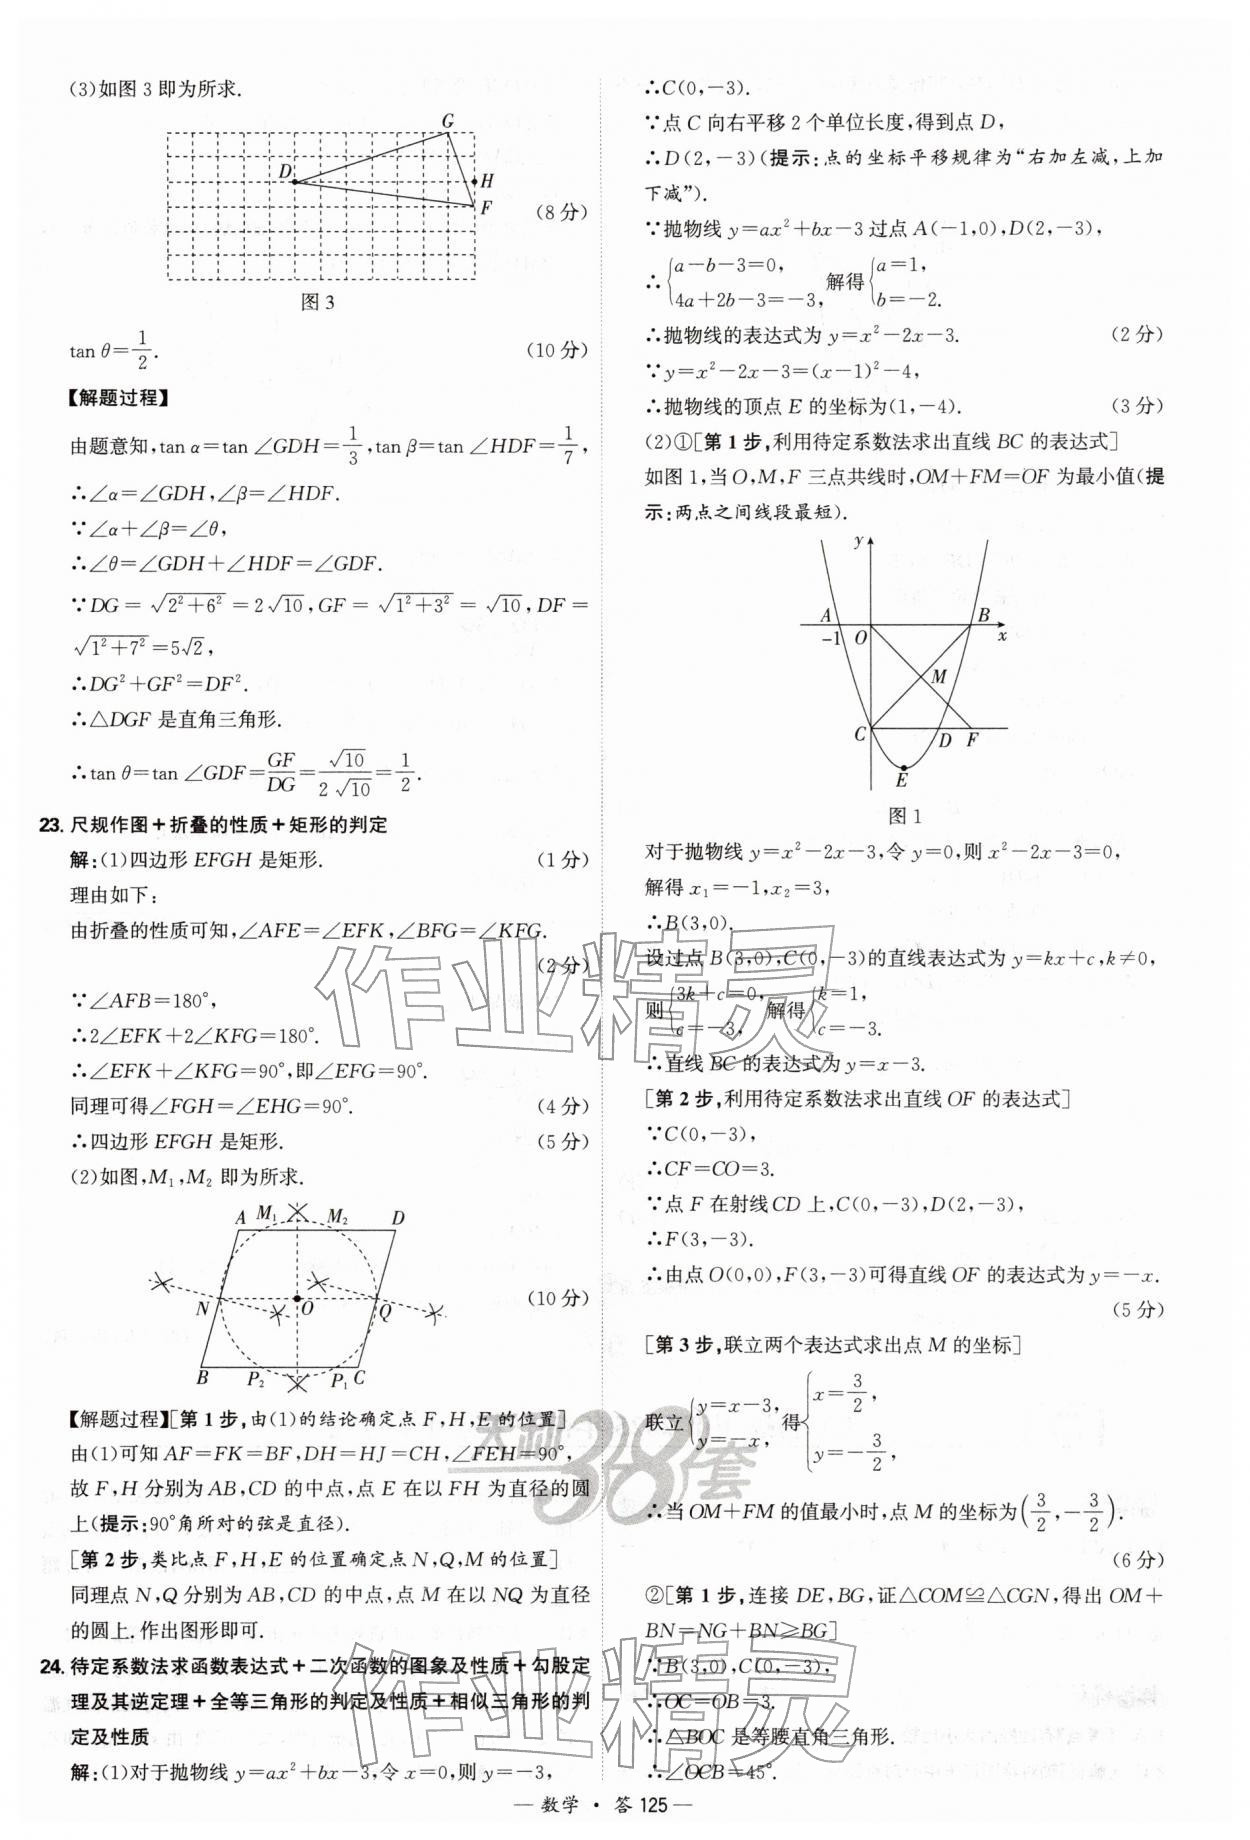 (3)如图3即为所求.
G
D
H
F
(8分)
图3
tan θ=1/2. (10分)
【解题过程】
由题意知,tan α=tan ∠GDH=1/3,tan β=tan ∠HDF=1/7,
∴∠α=∠GDH,∠β=∠HDF.
∵∠α+∠β=∠θ,
∴∠θ=∠GDH+∠HDF=∠GDF.
∵DG=√(2²+6²)=2√10,GF=√(1²+3²)=√10,DF=
√(1²+7²)=5√2,
∴DG²+GF²=DF².
∴△DGF 是直角三角形.
∴tan θ=tan ∠GDF=GF/DG=√10/(2√10)=1/2.
23. 尺规作图+折叠的性质+矩形的判定
解:(1)四边形 EFGH 是矩形. (1分)
理由如下:
由折叠的性质可知,∠AFE=∠EFK,∠BFG=∠KFG.
(2分)
∵∠AFB=180°,
∴2∠EFK+2∠KFG=180°.
∴∠EFK+∠KFG=90°,即∠EFG=90°.
同理可得∠FGH=∠EHG=90°. (4分)
∴四边形 EFGH 是矩形. (5分)
(2)如图,M₁,M₂ 即为所求.
A M₁ M₂ D
N O Q
(10分)
B P₂ P₁ C
【解题过程】[第1步,由(1)的结论确定点 F,H,E 的位置]
由(1)可知 AF=FK=BF,DH=HJ=CH,∠FEH=90°,
故 F,H 分别为 AB,CD 的中点,点 E 在以 FH 为直径的圆
上(提示:90°角所对的弦是直径).
[第2步,类比点 F,H,E 的位置确定点 N,Q,M 的位置]
同理点 N,Q 分别为 AB,CD 的中点,点 M 在以 NQ 为直径
的圆上.作出图形即可.
24. 待定系数法求函数表达式+二次函数的图象及性质+勾股定
理及其逆定理+全等三角形的判定及性质+相似三角形的判
定及性质
解:(1)对于抛物线 y=ax²+bx-3,令 x=0,则 y=-3,
∴C(0,-3).
∵点 C 向右平移2个单位长度,得到点 D,
∴D(2,-3)(提示:点的坐标平移规律为“右加左减,上加
下减”).
∵抛物线 y=ax²+bx-3 过点 A(-1,0),D(2,-3),
∴{a-b-3=0, 4a+2b-3=-3, 解得{a=1, b=-2.
∴抛物线的表达式为 y=x²-2x-3. (2分)
∵y=x²-2x-3=(x-1)²-4,
∴抛物线的顶点 E 的坐标为(1,-4). (3分)
(2)①[第1步,利用待定系数法求出直线 BC 的表达式]
如图1,当 O,M,F 三点共线时,OM+FM=OF 为最小值(提
示:两点之间线段最短).
y
A B
-1 O x
M
C D F
E
图1
对于抛物线 y=x²-2x-3,令 y=0,则 x²-2x-3=0,
解得 x₁=-1,x₂=3,
∴B(3,0).
设过点 B(3,0),C(0,-3)的直线表达式为 y=kx+c,k≠0,
则{3k+c=0, c=-3, 解得{k=1, c=-3.
∴直线 BC 的表达式为 y=x-3.
[第2步,利用待定系数法求出直线 OF 的表达式]
∵C(0,-3),
∴CF=CO=3.
∵点 F 在射线 CD 上,C(0,-3),D(2,-3),
∴F(3,-3).
∴由点 O(0,0),F(3,-3)可得直线 OF 的表达式为 y=-x.
(5分)
[第3步,联立两个表达式求出点 M 的坐标]
联立{y=x-3, y=-x, 得{x=3/2, y=-3/2,
∴当 OM+FM 的值最小时,点 M 的坐标为(3/2,-3/2).
(6分)
②[第1步,连接 DE,BG,证△COM≌△CGN,得出 OM+
BN=NG+BN≥BG]
∵B(3,0),C(0,-3),
∴OC=OB=3.
∴△BOC 是等腰直角三角形.
∴∠OCB=45°.
— 数学·答125 —
作业精灵
天利38套
作业精灵